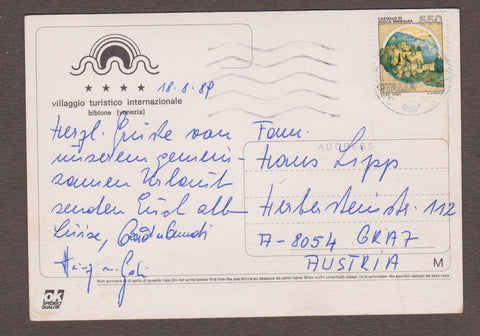 CASTELLO DI
ROCCA SINIBALDA
550
ITALIA
villaggio turistico internazionale
bibione (venezia)
18.8.89
Herzl. Grüße von
unserem gemein-
samen Urlaub
senden Euch
Luise,
Heinz u. Gabi
ADDRESS
Fam.
Hans Lipp
Herbersteinstr. 112
A-8054 GRAZ
AUSTRIA
M
Non scrivere sotto di questa riga Do not write below this line Ne rien écrire au dessous de cette ligne Bitte nicht unterhalb dieser Linie schreiben No escribir debajo de esta raya
OK
QUALITA'